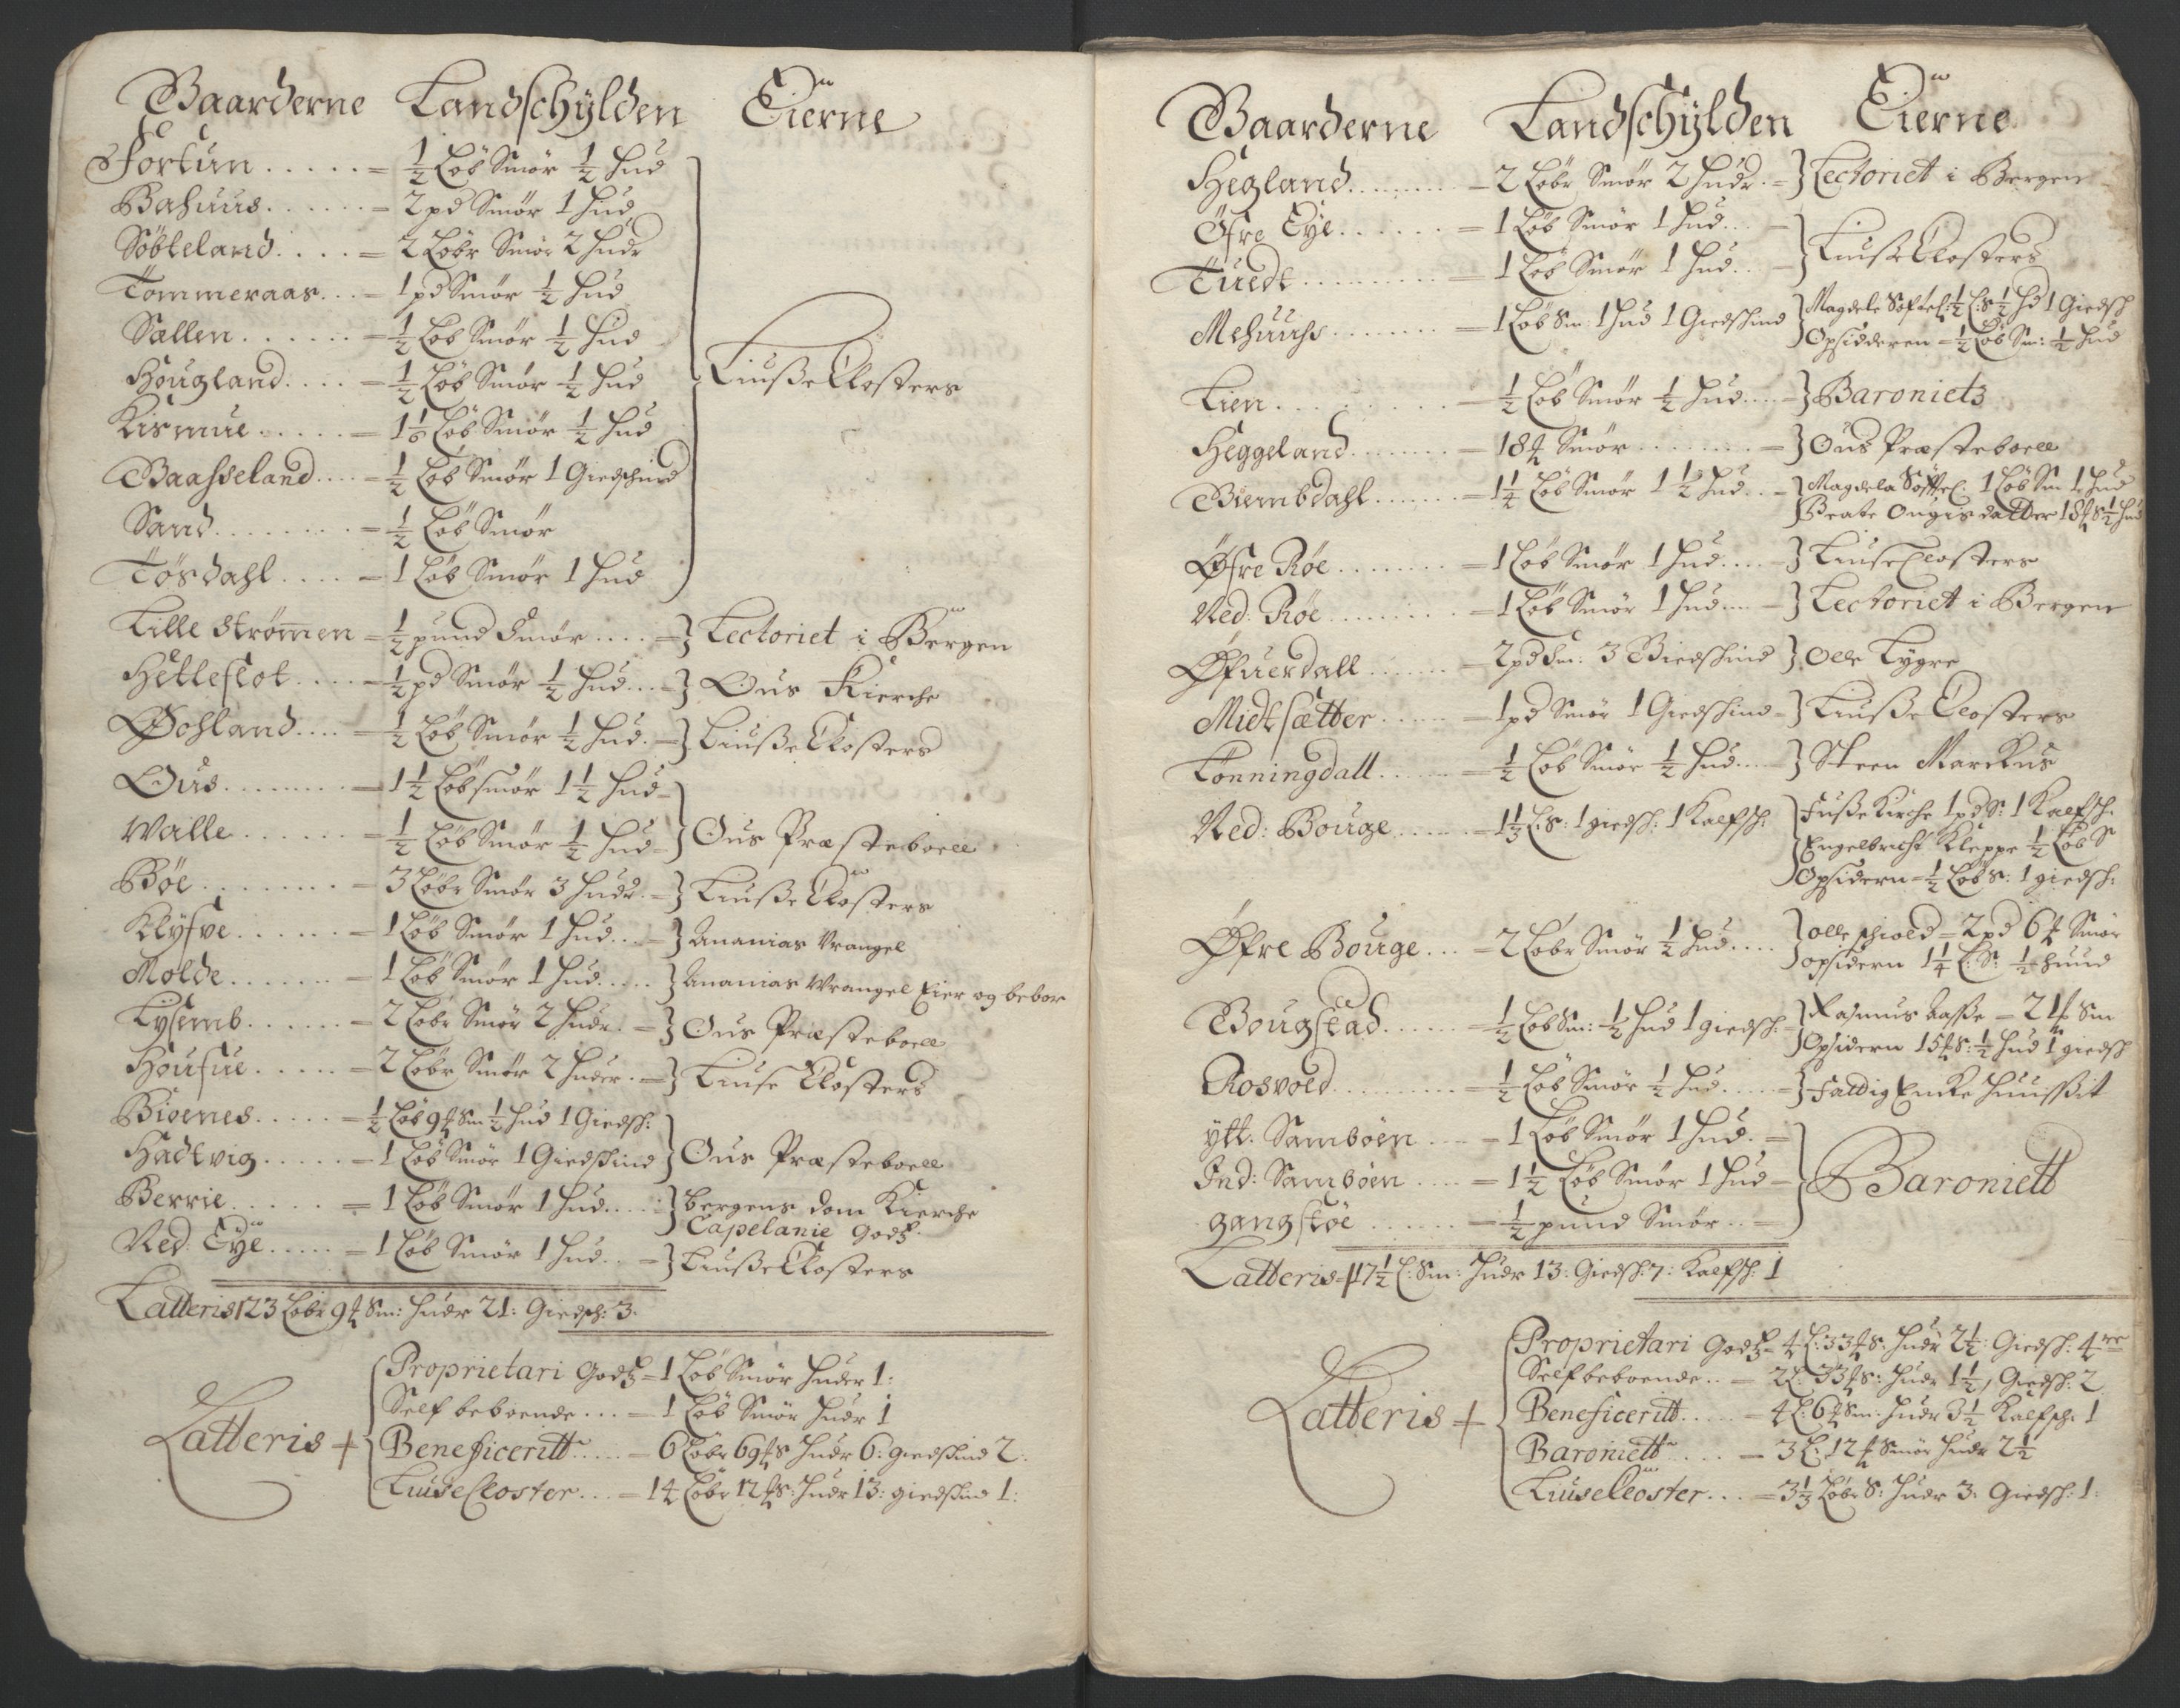 Gaarderne Landschÿlden Eierne
Fortun ..... = ½ Løb Smør ½ Hud
Bahuus ...... = 2 pd Smør 1 Hud
Søbteland .... = 2 Løbr Smør 2 Hudr
Tømmeraas ... = 1 pd Smør ½ Hud
Sællen ...... = ½ Løb Smør ½ Hud
Hougland .... = ½ Løb Smør ½ Hud } Liusse Closters
Kismue ..... = 1⅙ Løb Smør ½ Hud
Baasseland .... = ½ Løb Smør 1 Giedschind
Sand ....... = ½ Løb Smør
Tøsdahl .... = 1 Løb Smør 1 Hud
Lille Strømmen = ½ pund Smør .... = } Lectoriet i Bergen
Hetleflot .... = ½ pd Smør ½ Hud ... = } Ous Kierche
Øchland .... = ½ Løb Smør ½ Hud . = } Liusse Closters
Ous ........ = 1½ Løb smør 1½ Hud =
Walle ...... = ½ Løb Smør ½ Hud = } Ous Præsteboell
Bøe ........ = 3 Løbr Smør 3 Hudr . = } Liusse Closters
Klyfve ...... = 1 Løb Smør 1 Hud ... = } Ananias Vrangel
Molde ...... = 1 Løb Smør 1 Hud ..... } Ananias Wrangel Eier og bebor
Lysemb ...... = 2 Løbr Smør 2 Hudr . = } Ous Præsteboell
Houfue ..... = 2 Løbr Smør 2 Huder . = } Liuse Closters
Biørnes ..... = ½ Løb 9 ℔ Sm ½ Hud 1 Giedsch:
Hadtvig ..... = 1 Løb Smør 1 Giedschind } Ous Præsteboell
Berrie ..... = 1 Løb Smør 1 Hud .... } bergens dom Kierche
Capelanie Godtz
Ned: Eÿe ..... = 1 Løb Smør 1 Hud .. = } Liusse Closters
Latteris 23 Løbr 9 ℔ Sm: Hudr 21: Giedsch: 3.
Proprietari Godtz = 1 Løb Smør Huder 1:
Self beboende ... = 1 Løb Smør Hudr 1
Latteris { Beneficeritt ..... = 6 Løbr 69 ℔ S Hudr 6: giedschind 2:
Luise Closter ... = 14 Løbr 12 ℔ S: Hudr 13: giedschind 1:
Gaarderne Landschÿlden Eierne
Hegland ........ = 2 Løbr Smør 2 Hudr . = } Lectoriet i Bergen
Øfre Eÿe ...... = 1 Løb Smør 1 Hud ... =
Tuedt ......... = 1 Løb Smør 1 Hud .. = } Liusse Closters
Mehuuhs ........ = 1 Løb Sm: 1 Hud 1 Giedschind } Magdele Søftel: ½ L: S ½ Hd 1 Giedsch
Opsidderen = ½ Løb Sm: ½ Hud
Lien ......... = ½ Løb Smør ½ Hud .... = } Baronietz
Heggeland ....... = 18 ℔ Smør ........ = } Ous Præsteboell
Biembdahl ...... = 1¼ Løb Smør 1½ Hud .. = } Magdela Søftel: 1 Løb Sm 1 Hud
Beate Ougis datter 18 ℔ S ½ Hud
Øfre Røe ........ = 1 Løb Smør 1 Hud .... = } Liuse Closters
Ned: Røe ......... = 1 Løb Smør 1 Hud .... = } Lectoriet i Bergen
Øfuerdall ...... = 2 pd Sm: 3 Giedschind } Olle Lygre
Midtsætter ..... = 1 pd Smør 1 Giedschind = } Liusse Closters
Tønningdall ..... = ½ Løb Smør ½ Hud .... } Steen Marckus
Ned: Bouge ..... = 1⅓ L: S: 1 giedsch: 1 Kalfsch: } Fusse Kirche 1 pd S: 1 Kalfsch:
Engelbricht Kleppe ½ Løb S
Opsidern = ½ Løb S: 1 giedsch:
Øfre Bouge ... = 2 Løbr Smør ½ Hud .... } olle schiold = 2 pd 6 ℔ Smør
opsidern 1¼ L: S: ½ huud
Bougstad ...... = ½ Løb Sm: ½ Hud 1 giedsch: } Rasmus Aasse = 21 ℔ Sm
Opsidern 15 ℔ S: ½ Hud 1 giedsch
Rosvold ......... = ½ Løb Smør ½ Hud ..... = } Fattig Encke Huussit
ÿtt: Sambøen .... = 1 Løb Smør 1 Hud . =
Ind: Sambøen .... = 1½ Løb Smør 1 Hud = } Baroniett
gangstøe ...... = ½ pund Smør .. =
Latteris 17½ L: Sm: Hudr 13: Giedsch: 7: Kalfsch: 1
Proprietari Godtz = 4 L: 33 ℔ S: Hudr 2½: Giedsch: 4
Self beboende .. = 2 L: 33 ℔ S: Hudr 1½, Giedsch: 2
Latteris { Beneficeritt ..... = 4 L: 6 ℔ Sm: Hudr 3½ Kalfsch: 1
Baroniett ..... = 3 L: 12 ℔ Smør Hudr 2½
Luise Closter ... = 3⅓ Løbr S: Hudr 3. Giedsch: 1.